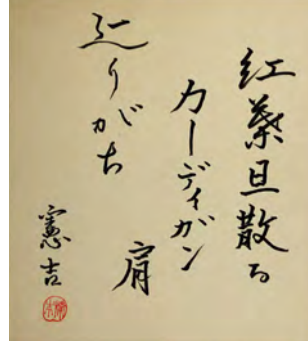 紅葉且散る
カーディガン
肩
辷りがち
憲吉